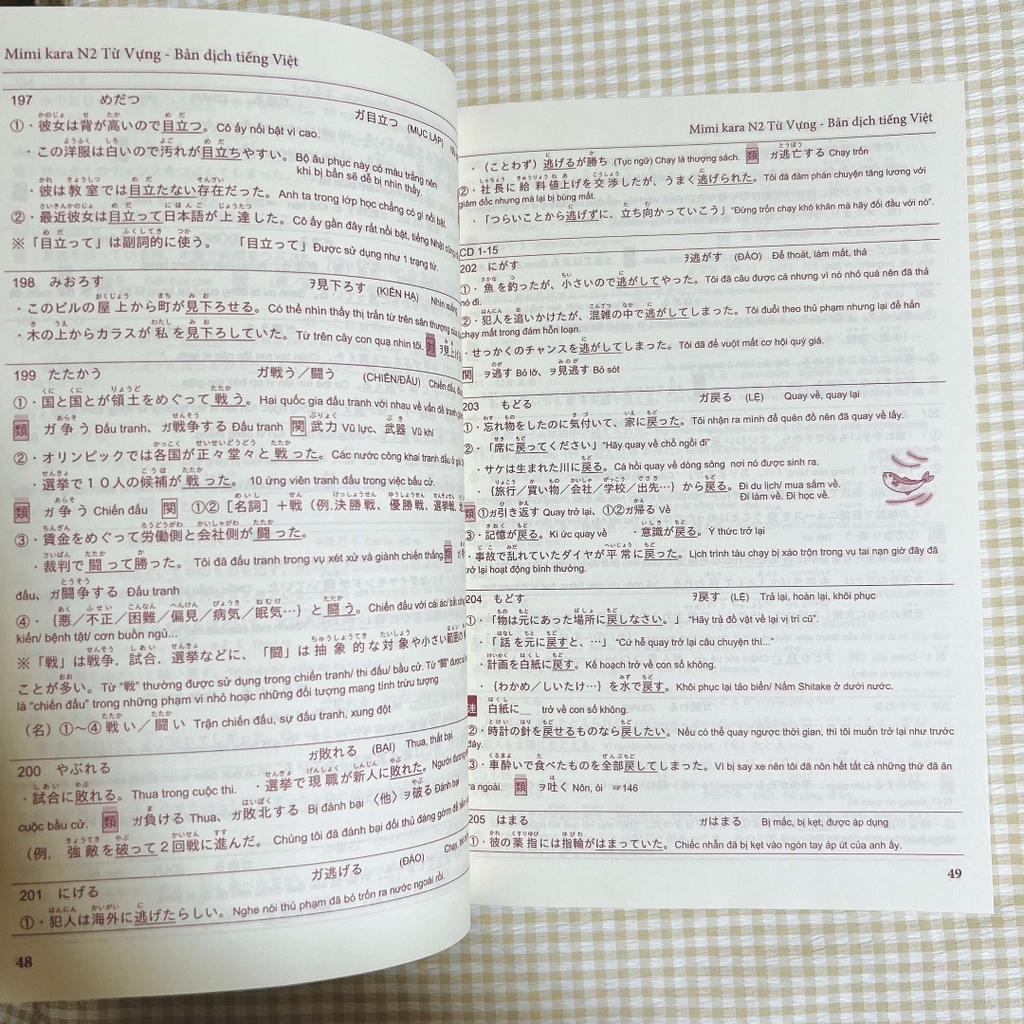 Mimi kara N2 Từ Vựng - Bản dịch tiếng Việt
197 めだつ ガ目立つ (MỤC LẬP)
①・彼女は背が高いので目立つ。Cô ấy nổi bật vì cao.
・この洋服は白いので汚れが目立ちやすい。Bộ âu phục này có màu trắng nên
khi bị bẩn sẽ dễ bị nhìn thấy.
・彼は教室では目立たない存在だった。Anh ta trong lớp học chẳng có gì nổi bật.
②・最近彼女は目立って日本語が上達した。Cô ấy gần đây rất nổi bật, tiếng Nhật cũng
※「目立って」は副詞的に使う。 「目立って」Được sử dụng như 1 trạng từ.
198 みおろす ヲ見下ろす (KIẾN HẠ) Nhìn xuống
・このビルの屋上から町が見下ろせる。Có thể nhìn thấy thị trấn từ trên sân thượng của
・木の上からカラスが私を見下ろしていた。Từ trên cây con quạ nhìn tôi. 対 ヲ見上げ
199 たたかう ガ戦う／闘う (CHIẾN/ĐẤU) Chiến đấu,
①・国と国とが領土をめぐって戦う。Hai quốc gia đấu tranh với nhau về vấn đề tranh
類 ガ争う Đấu tranh、ガ戦争する Đấu tranh 関 武力 Vũ lực、武器 Vũ khí
②・オリンピックでは各国が正々堂々と戦った。Các nước công khai tranh đấu ở
・選挙で１０人の候補が戦った。10 ứng viên tranh đấu trong việc bầu cử.
類 ガ争う Chiến đấu 関 ①②［名詞］＋戦（例．決勝戦、優勝戦、選挙戦、
③・賃金をめぐって労働側と会社側が闘った。
・裁判で闘って勝った。 Tôi đã đấu tranh trong vụ xét xử và giành chiến thắng. 類
đấu、ガ闘争する Đấu tranh
④・｛悪／不正／困難／偏見／病気／眠気…｝と闘う。Chiến đấu với cái ác/ bất
kiến/ bệnh tật/ cơn buồn ngủ...
※「戦」は戦争、試合、選挙などに、「闘」は抽象的な対象や小さい範囲の
ことが多い。Từ “戦” thường được sử dụng trong chiến tranh/ thi đấu/ bầu cử. Từ “闘” được
là “chiến đấu” trong những phạm vi nhỏ hoặc những đối tượng mang tính trừu tượng
（名）①～④戦い／闘い Trận chiến đấu, sự đấu tranh, xung đột
200 やぶれる ガ敗れる (BẠI) Thua, thất bại
・試合に敗れる。Thua trong cuộc thi. ・選挙で現職が新人に敗れた。Người đương
cuộc bầu cử. 類 ガ負ける Thua、ガ敗北する Bị đánh bại 〈他〉ヲ破る Đánh bại
（例．強敵を破って２回戦に進んだ。 Chúng tôi đã đánh bại đối thủ đáng gờm để
201 にげる ガ逃げる (ĐÀO) Chạy,
①・犯人は海外に逃げたらしい。Nghe nói thủ phạm đã bỏ trốn ra nước ngoài rồi.
48
Mimi kara N2 Từ Vựng - Bản dịch tiếng Việt
・（ことわざ）逃げるが勝ち (Tục ngữ) Chạy là thượng sách. 類 ガ逃亡する Chạy trốn
②・社長に給料値上げを交渉したが、うまく逃げられた。Tôi đã đàm phán chuyện tăng lương với
giám đốc nhưng mà lại bị bùng mất.
・「つらいことから逃げずに、立ち向かっていこう」“Đừng trốn chạy khó khăn mà hãy đối đầu với nó”.
CD 1-15
202 にがす ヲ逃がす (ĐÀO) Để thoát, làm mất, thả
①・魚を釣ったが、小さいので逃がしてやった。Tôi đã câu được cá nhưng vì nó nhỏ quá nên đã thả
nó đi.
②・犯人を追いかけたが、混雑の中で逃がしてしまった。Tôi đuổi theo thủ phạm nhưng lại để hắn
chạy mất trong đám hỗn loạn.
・せっかくのチャンスを逃がしてしまった。Tôi đã để vuột mất cơ hội quý giá.
関 ヲ逃す Bỏ lỡ、ヲ見逃す Bỏ sót
203 もどる ガ戻る (LỆ) Quay về, quay lại
①・忘れ物をしたのに気付いて、家に戻った。Tôi nhận ra mình để quên đồ nên đã quay về lấy.
②・「席に戻ってください」“Hãy quay về chỗ ngồi đi”
・サケは生まれた川に戻る。Cá hồi quay về dòng sông nơi nó được sinh ra.
・｛旅行／買い物／会社／学校／出先…｝から戻る。Đi du lịch/ mua sắm về.
Đi làm về. Đi học về.
類 ①ガ引き返す Quay trở lại、①②ガ帰る Về
③・記憶が戻る。Kí ức quay về ・意識が戻る。Ý thức trở lại
・事故で乱れていたダイヤが平常に戻った。Lịch trình tàu chạy bị xáo trộn trong vụ tai nạn giờ đây đã
trở lại hoạt động bình thường.
204 もどす ヲ戻す (LỆ) Trả lại, hoàn lại, khôi phục
①・「物は元にあった場所に戻しなさい。」“Hãy trả đồ vật về lại vị trí cũ”.
・「話を元に戻すと、…」“Cứ hễ quay trở lại câu chuyện thì...”
・計画を白紙に戻す。Kế hoạch trở về con số không.
・｛わかめ／しいたけ…｝を水で戻す。Khôi phục lại tảo biển/ Nấm Shitake ở dưới nước.
連 白紙に＿ trở về con số không.
②・時計の針を戻せるものなら戻したい。Nếu có thể quay ngược thời gian, thì tôi muốn trở lại như trước
đây.
③・車酔いで食べたものを全部戻してしまった。Vì bị say xe nên tôi đã nôn hết tất cả những thứ đã ăn
ra ngoài. 類 ヲ吐く Nôn, ói ☞146
205 はまる ガはまる Bị mắc, bị kẹt, được áp dụng
①・彼の薬指には指輪がはまっていた。Chiếc nhẫn đã bị kẹt vào ngón tay áp út của anh ấy.
49